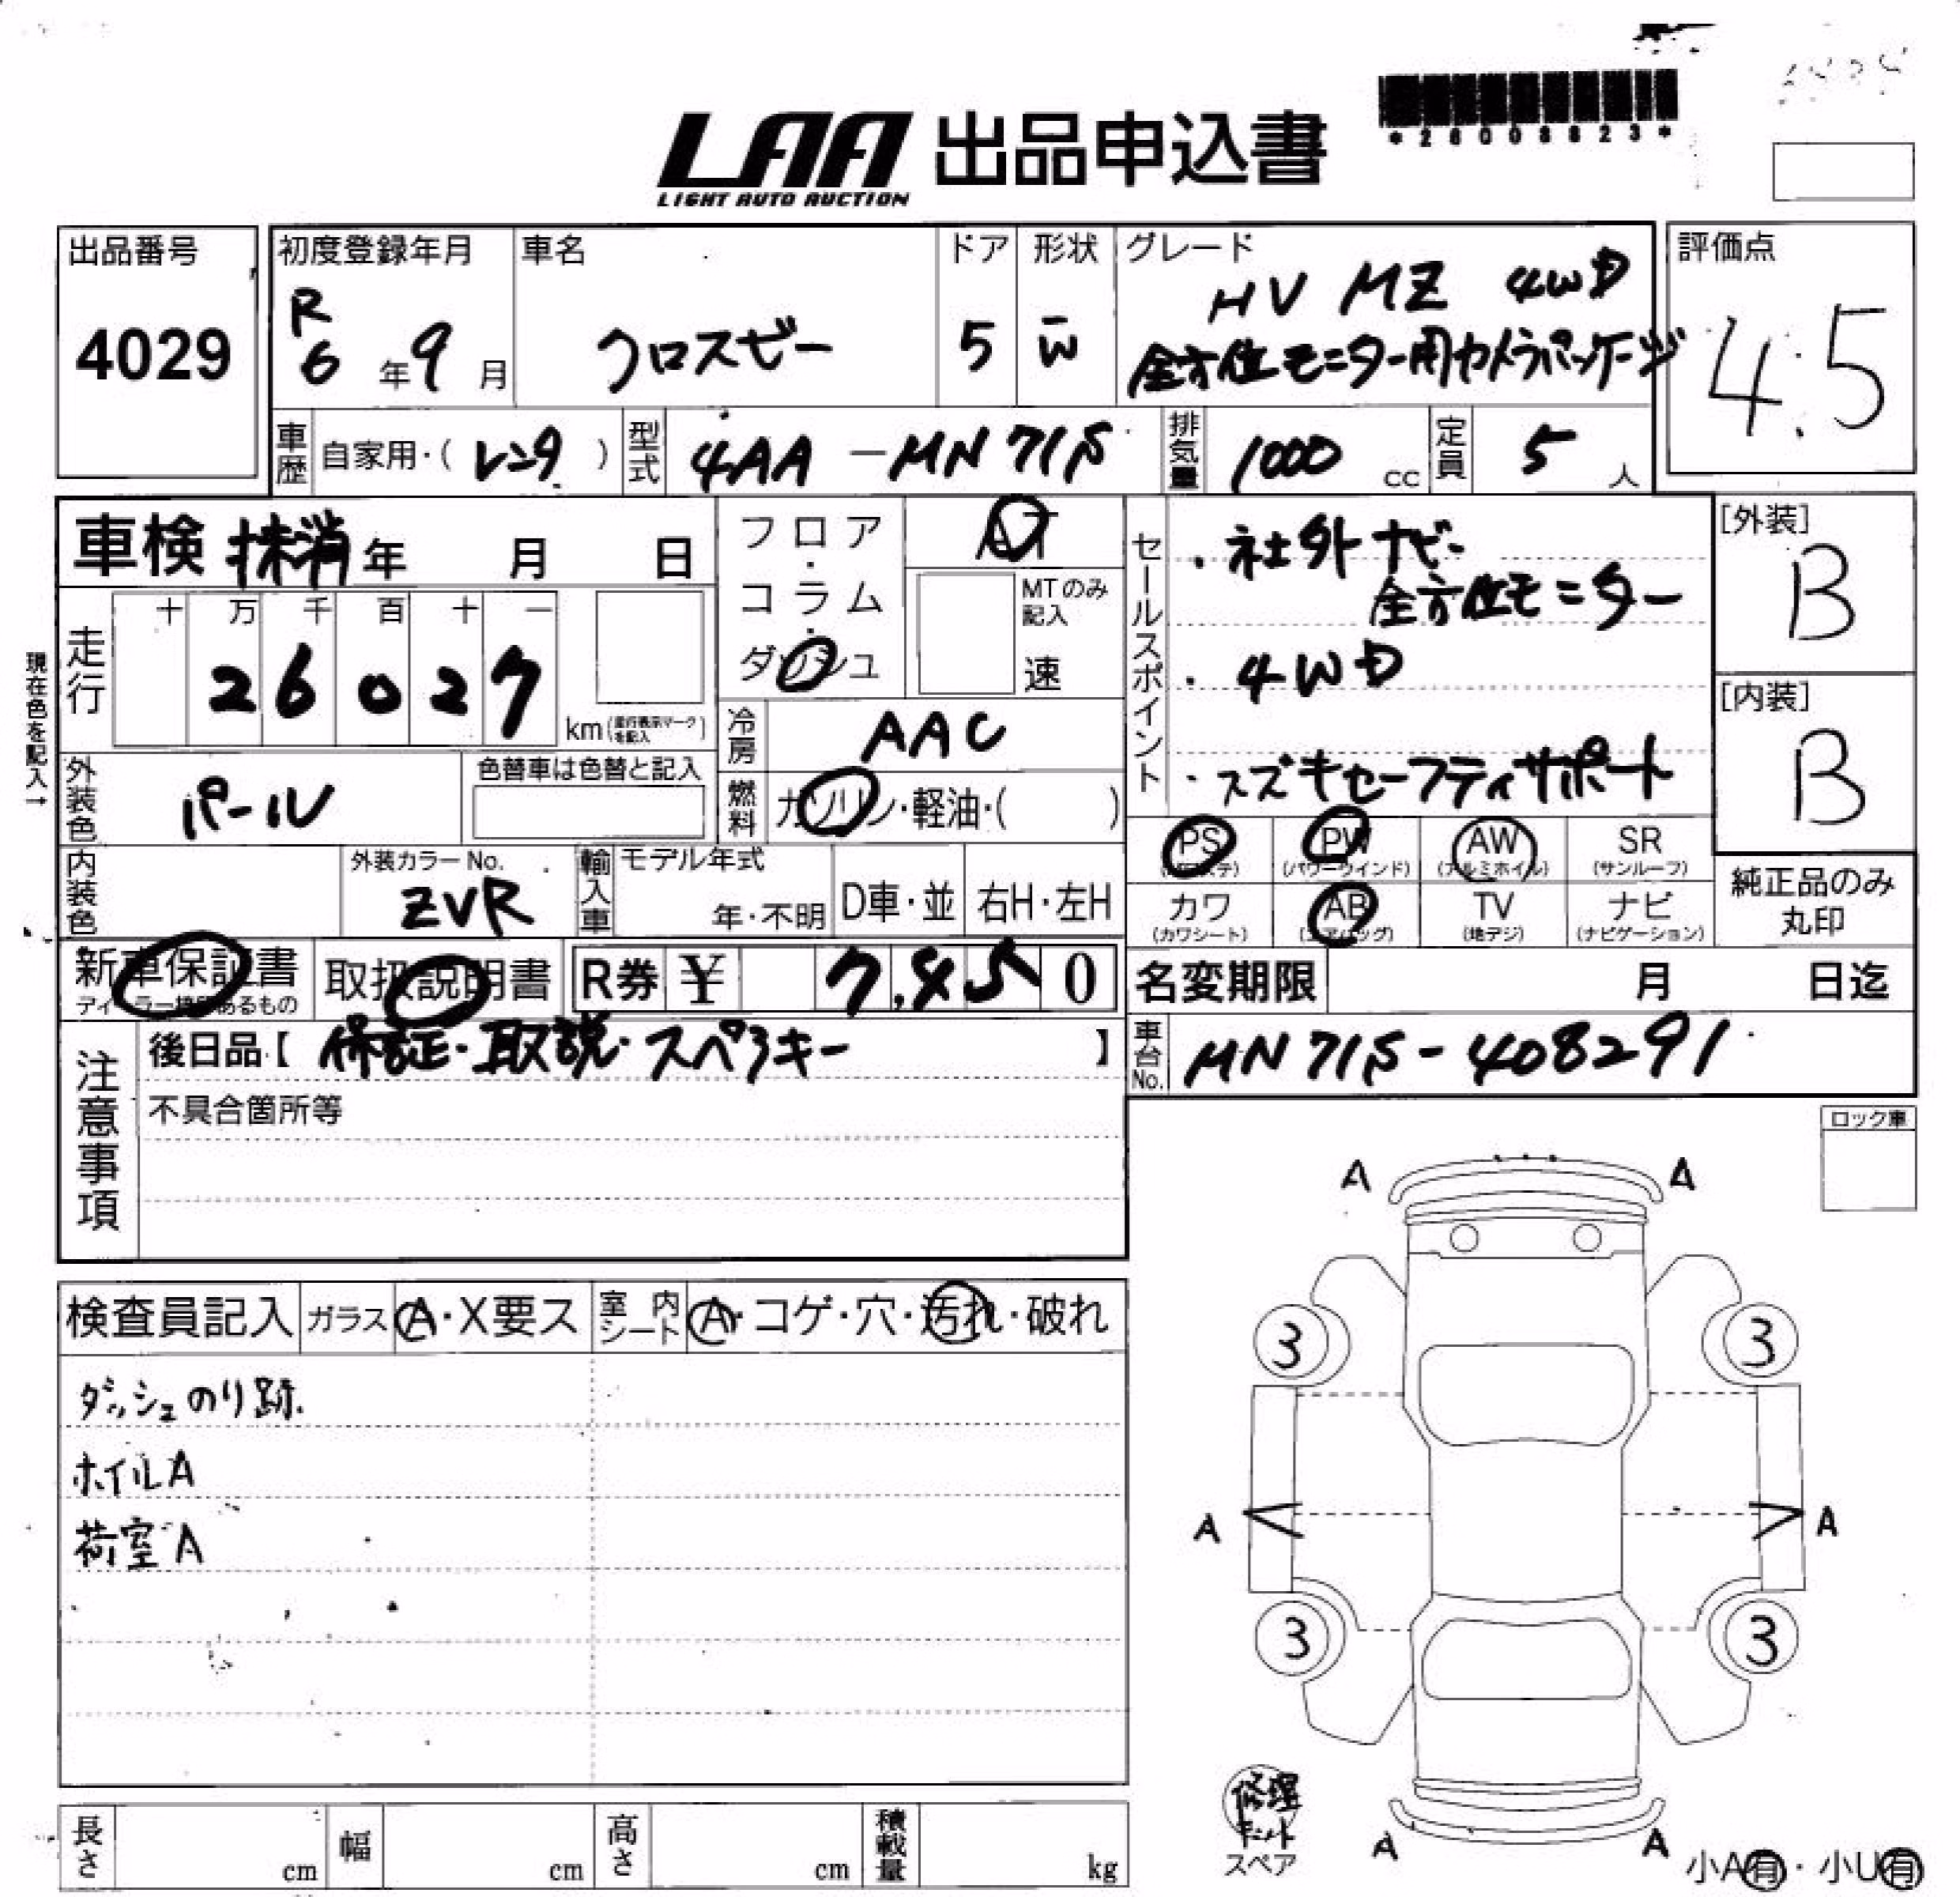 LAA 出品申込書
LIGHT AUTO AUCTION
*26008623*
出品番号
4029
初度登録年月
R
6年9月
車名
クロスビー
ドア
5
形状
W
グレード
HV MZ 4WD
全方位モニター用カメラパッケージ
評価点
4.5
車歴 自家用・(レンタ)
型式 4AA-MN71S
排気量 1000 cc
定員 5 人
車検 抹消 年 月 日
現在色を記入→
走行 十 万 千 百 十 一
26027
km(走行表示マークを記入)
フロア・コラム・ダッシュ
AT
MTのみ記入
速
冷房 AAC
燃料 ガソリン・軽油・( )
セールスポイント
・社外ナビ
全方位モニター
・4WD
・スズキセーフティサポート
[外装]
B
[内装]
B
外装色 パール
色替車は色替と記入
内装色
外装カラーNo.
ZVR
輸入車 モデル年式
年・不明
D車・並
右H・左H
PS (パワステ)
PW (パワーウインド)
AW (アルミホイル)
SR (サンルーフ)
カワ (カワシート)
AB (エアバッグ)
TV (地デジ)
ナビ (ナビゲーション)
純正品のみ
丸印
新車保証書
ディーラー捺印あるもの
取扱説明書
R券 ¥ 7,450
名変期限 月 日迄
注意事項
後日品【 保証・取説・スペアキー 】
車台No. MN71S-408291
不具合箇所等
ロック車
検査員記入
ガラス A・X要ス
室内シート A・コゲ・穴・汚れ・破れ
ダッシュのり跡.
ホイルA
荷室A
A A
3 3
A A
3 3
A A
修理キット
スペア
小A有・小U有
長さ cm
幅 cm
高さ cm
積載量 kg